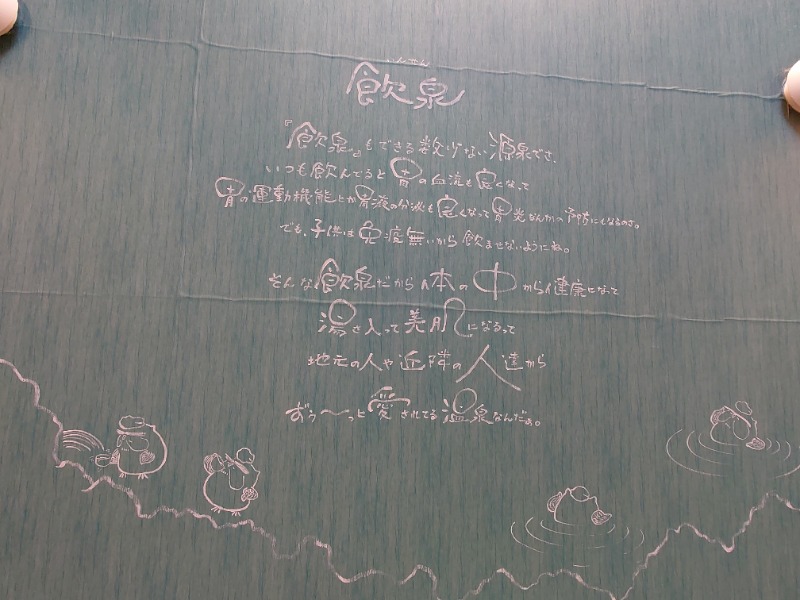 いんせん
飲泉
『飲泉』もできる数少ない源泉でさ、
いつも飲んでると胃の血流も良くなって
胃の運動機能とか胃液の分泌も良くなって胃炎なんかの予防にもなるのさ。
でも、子供は免疫無いから飲ませないようにね。
そんな飲泉だから体の中から健康になって
湯さ入って美肌になるって
地元の人や近隣の人達から
ずぅ〜っと愛されてる温泉なんだぁ。